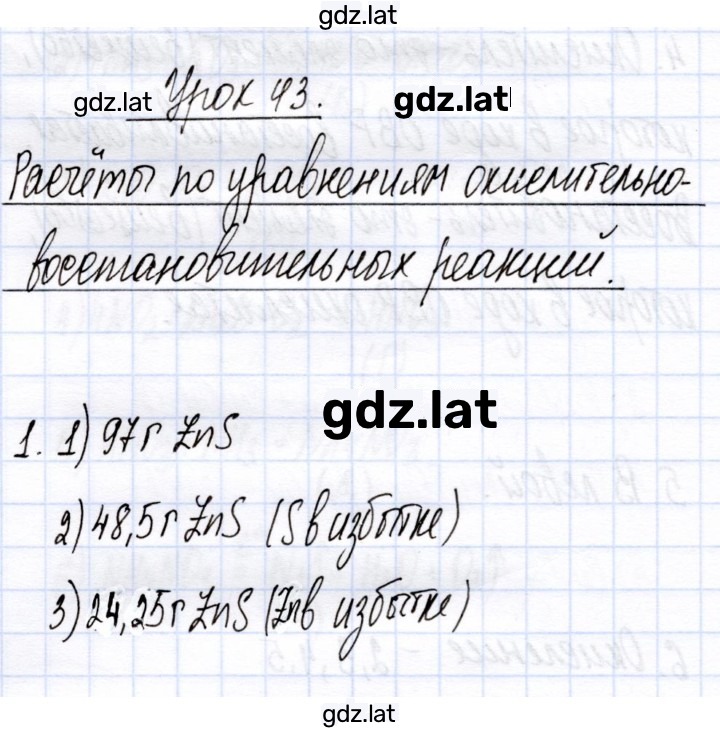 gdz.lat
gdz.lat Урок 43. gdz.lat
Расчёты по уравнениям окислительно-
восстановительных реакций.
gdz.lat
1. 1) 97г ZnS
2) 48,5г ZnS (S в избытке)
3) 24,25г ZnS (Zn в избытке)
gdz.lat